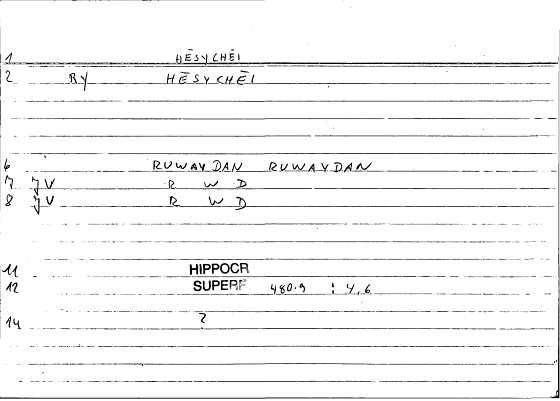 1 HĒSYCHĒI
2 RY HĒSYCHĒI
6 RUWAYDAN RUWAYDAN
7 JV R W D
8 JV R W D
11 HIPPOCR
12 SUPERF 480.9 : 4,6
14 2